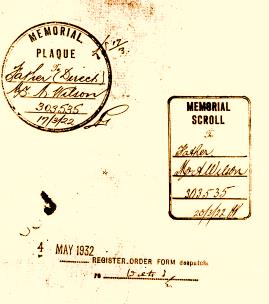 MEMORIAL
PLAQUE
To
Father (Direct)
Mr A Wilson
303535
17/3/22
17/3
MEMORIAL
SCROLL
To
Father
Mr A Wilson
303535
20/3/22
4 MAY 1932
REGISTER. ORDER FORM despatch
TO